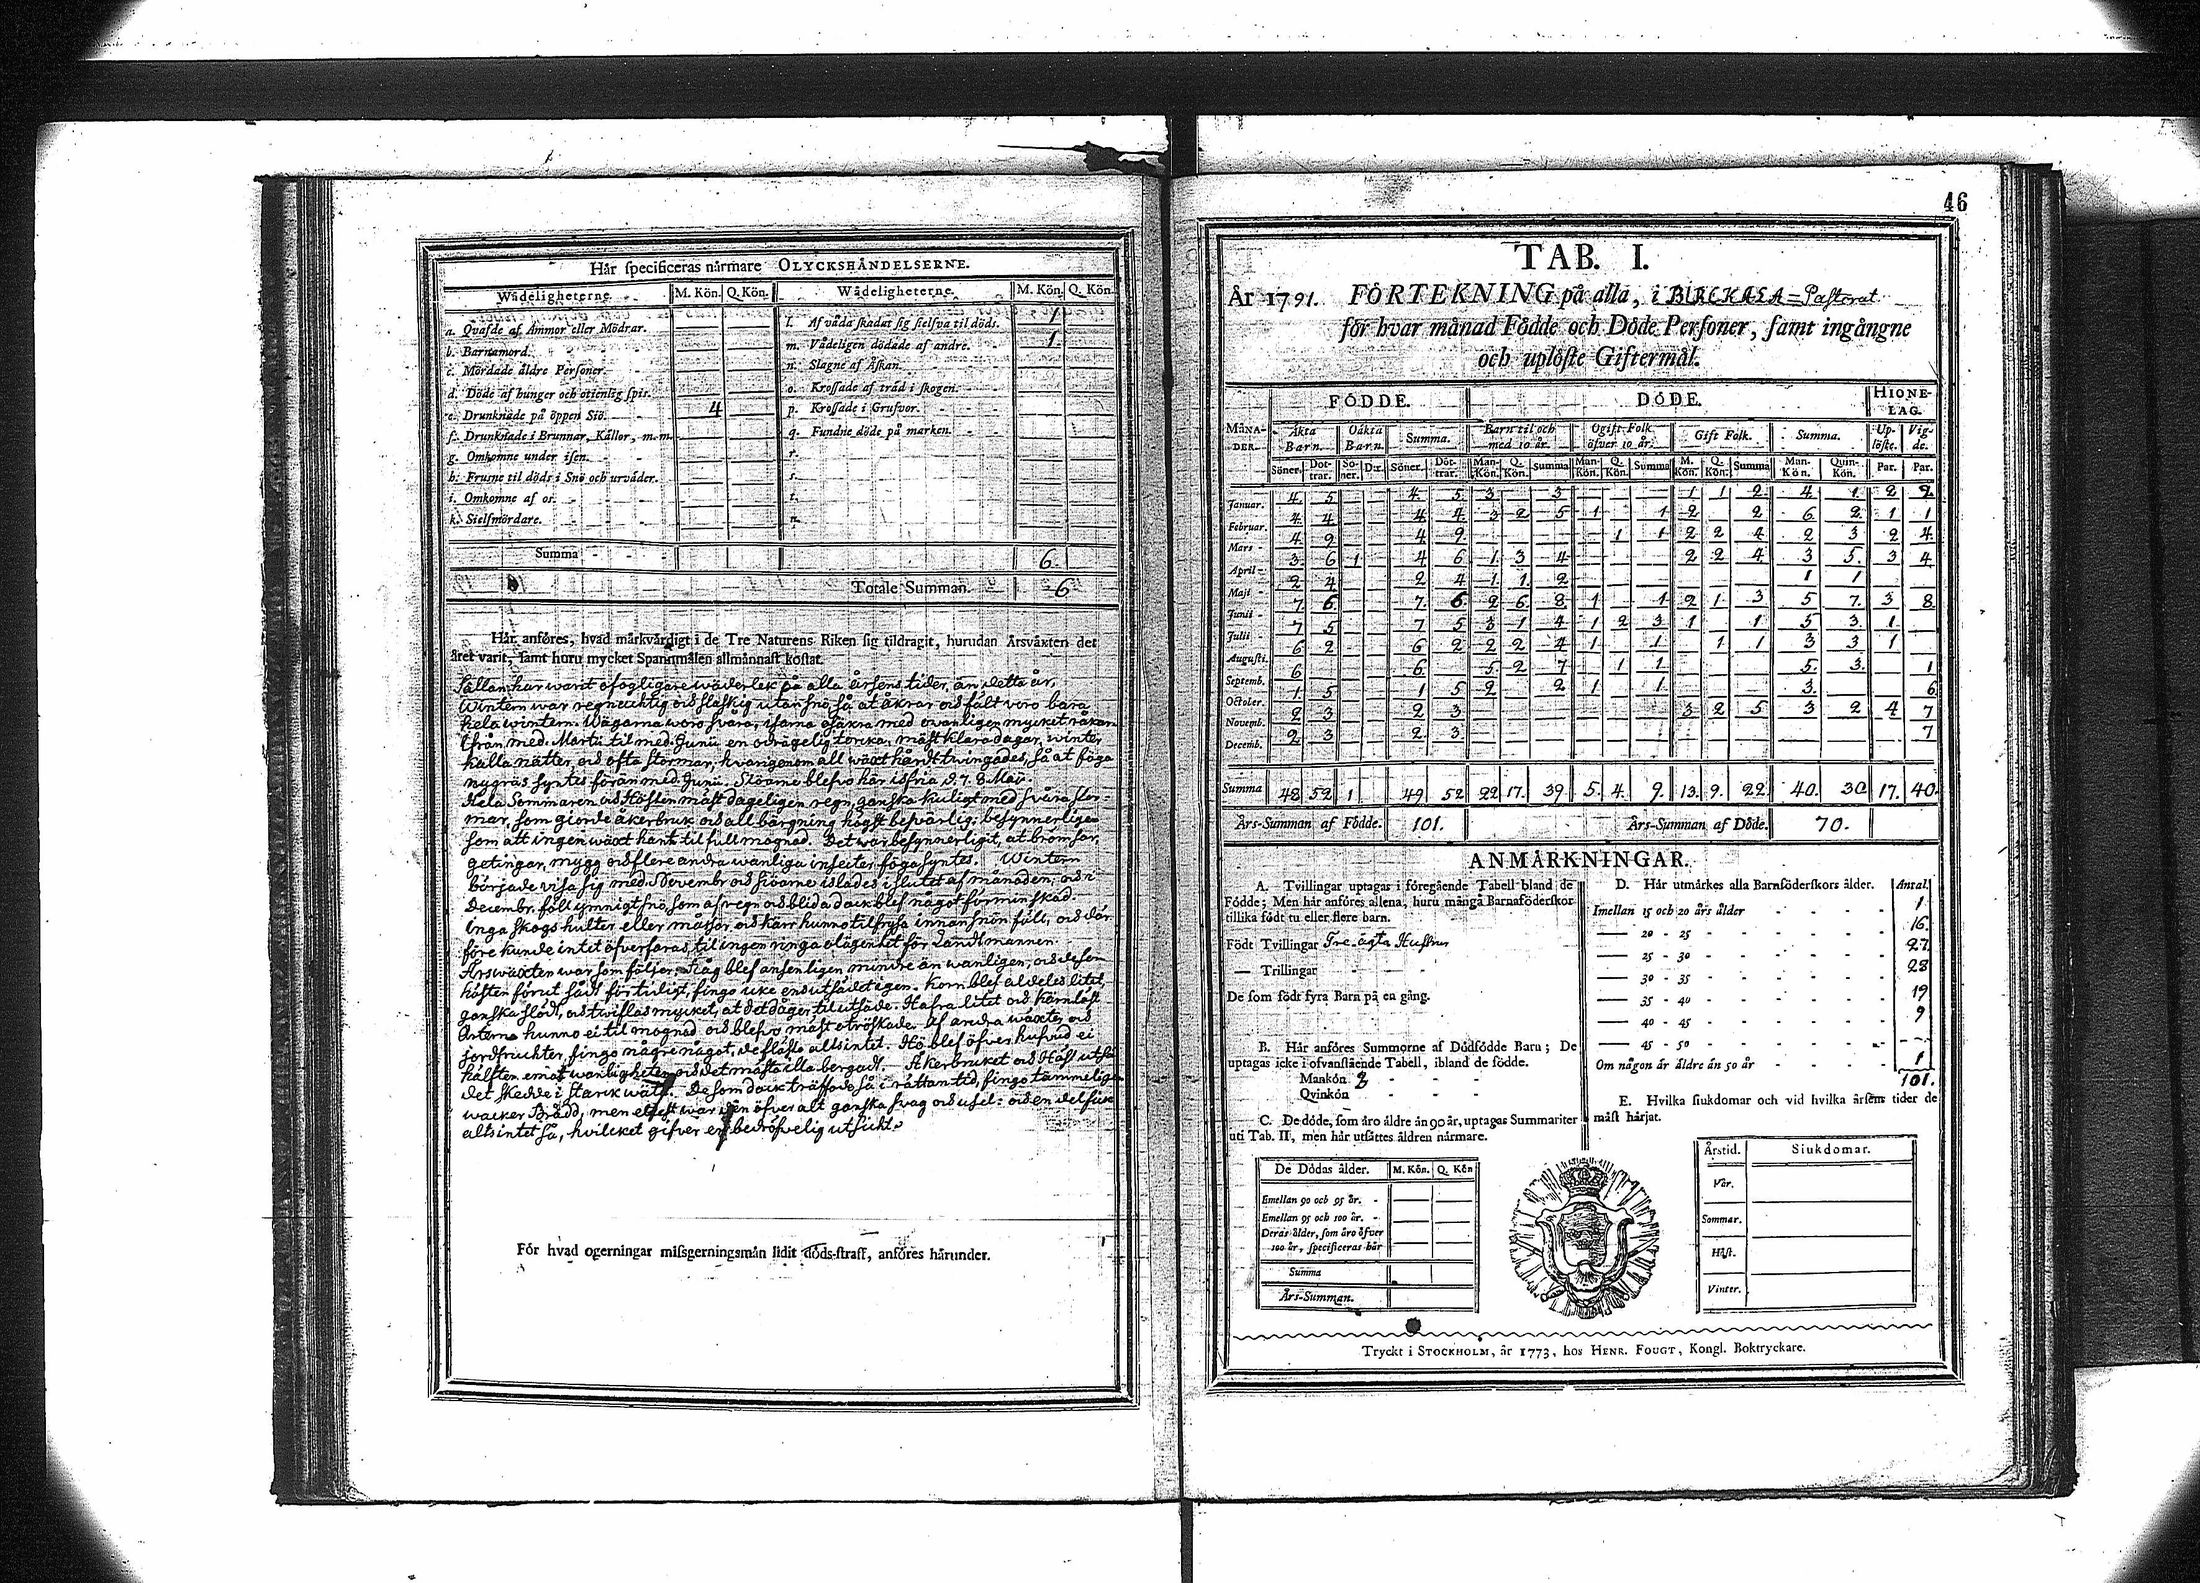 Här specificeras närmare OLYCKSHÄNDELSERNE.
Wådeligheterne. M. Kön. Q. Kön. Wådeligheterne. M. Kön. Q. Kön.
a. Qvafde af Ammor eller Mödrar. l. Af våda skadat sig sielfva til döds. 1
b. Barnamord. m. Vådeligen dödade af andre. 1
c. Mördade äldre Personer. n. Slagne af Åskan.
d. Döde af hunger och otienlig spis. o. Krossade af träd i skogen.
e. Drunknade på öppen Siö. 4 p. Krossade i Grufvor.
f. Drunknade i Brunnar, Källor, m.m. q. Fundne döde på marken.
g. Omkomne under isen. r.
h. Frusne til döds i Snö och urväder. s.
i. Omkomne af os. t.
k. Sielfmördare. u.
Summa 6.
Totale Summan. 6
Här anföres, hvad märkvärdigt i de Tre Naturens Riken sig tildragit, hurudan Årsväxten det
året varit, samt huru mycket Spannmålen allmännast kostat.
Sällan har warit ofogligare wäderlek på alla årsens tider, än detta år.
Wintern war regnachtig och slaskig utan snö, så at åkrar och fält woro bara
hela wintern. Wägarna woro swåra, isarna osäkra med owanligen mycket råkar.
ifrån med. Martii til med. Junii en odrägelig torcka, mäst klara dagar, winter
kalla nätter, och ofta stormar, hwarigenom all wäxt hårdt twingades, så at föga
nygräs syntes förän med. Junii. Siöarne blefvo här isfria d. 7. 8 Maii.
Hela Sommaren och Hösten mäst dageligen regn, ganska kuligt med svåra stor-
mar, som giorde åkerbruk och all bärgning högst besvärlig: besynnerligen
som att ingen wäxt hant til full mognad. Det war besynnerligit, at brömsar,
getingar, mygg och flere andra wanliga insecter föga syntes. Wintern
började visa sig med. Novembr och siöarne islades i slutet af månaden; och i
Decembr. fölt ymnigt snö, som af regn och blida dock blef något förminskad.
Inga skogs hulter eller måssar och kärr hunno tilfrysa innan snön fölt, och där
före kunde intet öfverfaras, til ingen ringa olägenhet för Landtmannen.
Årswäxten war som följer. Råg blef ansenligen mindre än wanligen, och de som
hösten förut sådt för tidigt, fingo icke ens utsädet igen. Korn blef aldeles litet,
ganska slödt, och twiflas mycket, at det dåger til utsäde. Hafra litet och kärnlöst
Ärterne hunno ei til mognad och blefvo mäst otröskade. Af andra wäxter och
jordfruckter fingo någre något, de flästa altsintet. Hö blef öfver hufvud ei
hälften emot wanligheten och det mästa illa bergadt. Åkerbruket och Höst utsä
det skedde i starck wäta. De som dock träffade så i rättan tid, fingo tämmelig
wacker Brådd, men eljest war den öfver alt ganska swag och usel: och en del
altsintet så, hvilcket gifver en bedröfvelig utsickt.
För hvad ogerningar missgerningsmän lidit döds-straff, anföres härunder.
46
TAB. I.
År 1791. FÖRTEKNING på alla, i BIRCKALA = Pastorat
för hvar månad Födde och Döde Personer, samt ingångne
och uplöste Giftermål.
MÅNA-DER. FÖDDE. DÖDE. HIONE-LAG.
Äkta Barn. Oäkta Barn. Summa. Barn til och med 10 år. Ogift Folk öfver 10 år. Gift Folk. Summa. Up-löste. Vig-de.
Söner. Dot-trar. Sö-ner. D:r. Söner. Döt-trar. Man-Kön. Q. Kön. Summa Man-Kön. Q. Kön. Summa M. Kön. Q. Kön. Summa Man-Kön. Quin-Kön. Par. Par.
Januar. 4. 5 4. 5 3 3 1 1 2 4 1 2 2
Februar. 4 4 4 4 3 2 5 1 1 2 2 6 2 1 1
Mars 4 9 4 9 1 1 2 2 4 2 3 2 4
April 3 6 1 4 6 1 3 4 2 2 4 3 5 3 4
Maji 2 4 2 4 1 1 2 1 1
Junii 7 6 7 6 2 6 8 1 1 2 1 3 5 7 3 8
Julii 7 5 7 5 3 1 4 1 2 3 1 1 5 3 1
Augusti. 6 2 6 2 2 2 4 1 1 1 1 3 3 1
Septemb. 6 6 5 2 7 1 1 5 3 1
October. 1 5 1 5 2 2 1 1 3 6
Novemb. 2 3 2 3 3 2 5 3 2 4 7
Decemb. 2 3 2 3 7
Summa 48 52 1 49 52 22 17. 39 5. 4. 9. 13. 9. 22 40. 30 17. 40.
Års-Summan af Födde. 101. Års-Summan af Döde. 70.
ANMÄRKNINGAR.
A. Tvillingar uptagas i föregående Tabell bland de
Födde; Men här anföres allena, huru många Barnaföderskor
tillika födt tu eller flere barn.
Födt Tvillingar Tre ägta Hustrur
— Trillingar
De som födt fyra Barn på en gång.
B. Här anföres Summorne af Dödfödde Barn; De
uptagas icke i ofvanstående Tabell, ibland de födde.
Mankön 2
Qvinkön
C. De döde, som äro äldre än 90 år, uptagas Summariter
uti Tab. II, men här utsättes åldren närmare.
De Dödas ålder. M. Kön. Q. Kön
Emellan 90 och 95 år.
Emellan 95 och 100 år.
Deras ålder, som äro öfver
100 år, specificeras här
Summa
Års-Summan.
D. Här utmärkes alla Barnföderskors ålder. Antal.
Imellan 15 och 20 års ålder 1
— 20 - 25 16.
— 25 - 30 27
— 30 - 35 28
— 35 - 40 19
— 40 - 45 9
— 45 - 50
Om någon är äldre än 50 år 1
101.
E. Hvilka siukdomar och vid hvilka årsens tider de
mäst härjat.
Årstid. Siukdomar.
Vår.
Sommar.
Höst.
Vinter.
Tryckt i STOCKHOLM, år 1773, hos HENR. FOUGT, Kongl. Boktryckare.